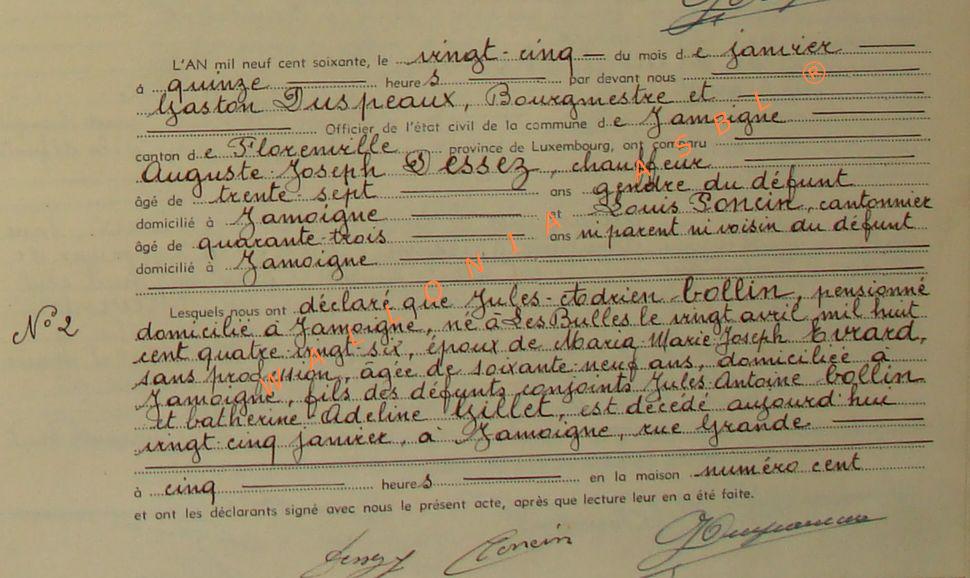 L'AN mil neuf cent soixante, le vingt-cinq du mois de janvier
à quinze heures par devant nous
Gaston Duspeaux, Bourgmestre et
Officier de l'état civil de la commune de Jamoigne
canton de Florenville province de Luxembourg, ont comparu
Auguste-Joseph Dessez, chauffeur
âgé de trente-sept ans gendre du défunt
domicilié à Jamoigne et Louis Poncin, cantonnier
âgé de quarante-trois ans ni parent ni voisin du défunt
domicilié à Jamoigne
Lesquels nous ont déclaré que Jules-Adrien Collin, pensionné
N° 2
domicilié à Jamoigne, né à Les Bulles le vingt avril mil huit
cent quatre-vingt-six, époux de Maria-Marie-Joseph Evrard,
sans profession, âgée de soixante-neuf ans, domiciliée à
Jamoigne, fils des défunts conjoints Jules-Antoine Collin
et Catherine-Adeline Gillet, est décédé aujourd'hui
vingt-cinq janvier, à Jamoigne, rue Grande
à cinq heures en la maison numéro cent
et ont les déclarants signé avec nous le présent acte, après que lecture leur en a été faite.
Poncin
WALLONIA ASBL ®